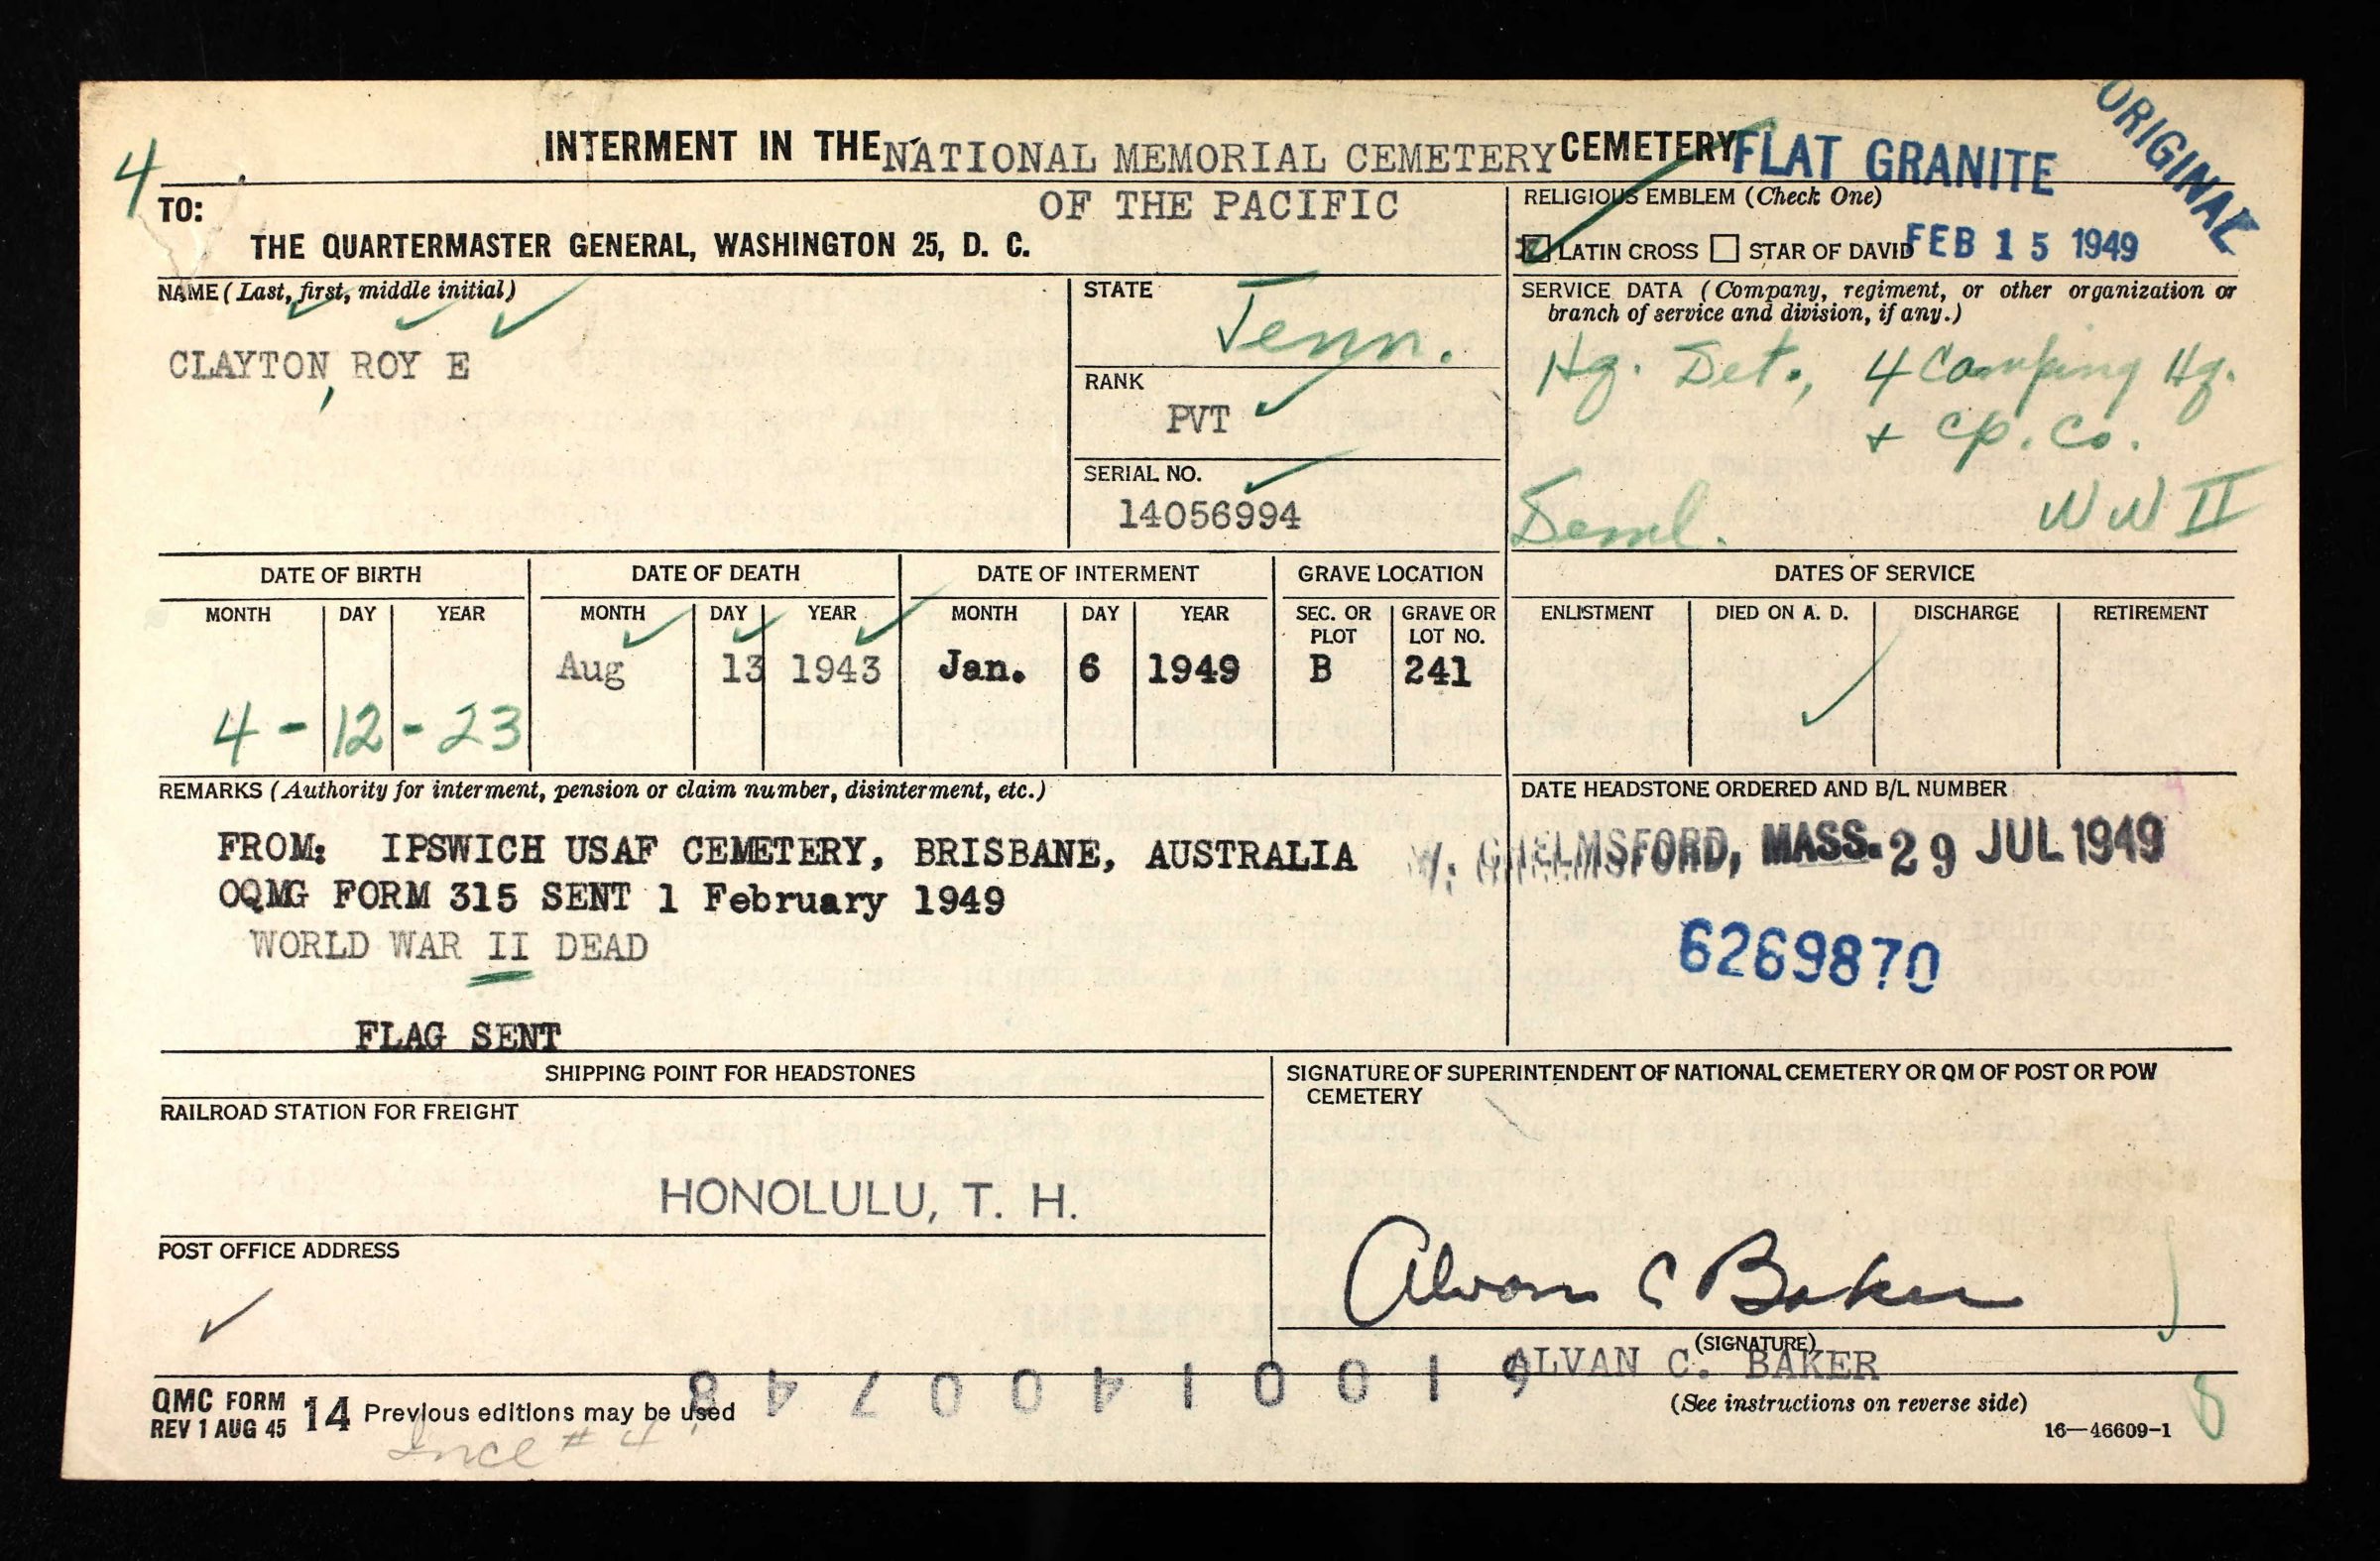 4
INTERMENT IN THE NATIONAL MEMORIAL CEMETERY CEMETERY FLAT GRANITE
OF THE PACIFIC
ORIGINAL
TO:
THE QUARTERMASTER GENERAL, WASHINGTON 25, D. C.
RELIGIOUS EMBLEM (Check One)
X LATIN CROSS STAR OF DAVID FEB 15 1949
NAME (Last, first, middle initial)
CLAYTON, ROY E
STATE
Tenn.
RANK
PVT
SERIAL NO.
14056994
SERVICE DATA (Company, regiment, or other organization or
branch of service and division, if any.)
Hq. Det., 4 Camping Hq.
+ Cp. Co.
WW II
DATE OF BIRTH DATE OF DEATH DATE OF INTERMENT GRAVE LOCATION DATES OF SERVICE
MONTH DAY YEAR MONTH DAY YEAR MONTH DAY YEAR SEC. OR PLOT GRAVE OR LOT NO. ENLISTMENT DIED ON A. D. DISCHARGE RETIREMENT
Aug 13 1943 Jan. 6 1949 B 241
4 - 12 - 23
REMARKS (Authority for interment, pension or claim number, disinterment, etc.)
FROM: IPSWICH USAF CEMETERY, BRISBANE, AUSTRALIA
OQMG FORM 315 SENT 1 February 1949
WORLD WAR II DEAD
FLAG SENT
DATE HEADSTONE ORDERED AND B/L NUMBER
W. CHELMSFORD, MASS. 29 JUL 1949
6269870
SHIPPING POINT FOR HEADSTONES
RAILROAD STATION FOR FREIGHT
HONOLULU, T. H.
POST OFFICE ADDRESS
SIGNATURE OF SUPERINTENDENT OF NATIONAL CEMETERY OR QM OF POST OR POW
CEMETERY
Alvan C Baker
(SIGNATURE)
ALVAN C. BAKER
(See instructions on reverse side)
16—46609-1
8
QMC FORM
REV 1 AUG 45 14 Previous editions may be used